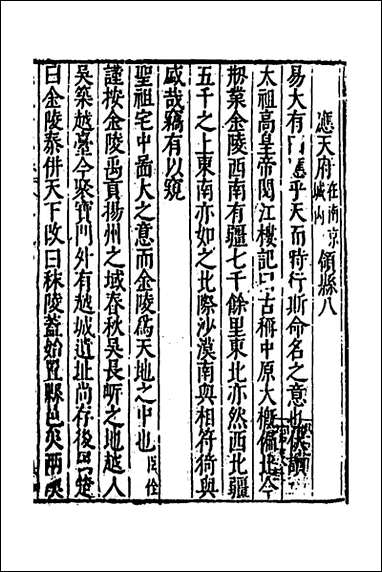 應天府在南京城內領縣八
易大有曰應乎天而時行斯命名之意也伏讀
太祖高皇帝閱江樓記曰古稱中原大概偏北今
刱業金陵西南有疆七千餘里東北亦然西北疆
五千之上東南亦如之北際沙漠南與相符倚與
盛哉竊有以窺
聖祖宅中啚大之意而金陵爲天地之中也臣佺
謹按金陵禹貢揚州之域春秋吳長蚈之地越人
吳築越臺今聚寶門外有越城遺址尚存後曰楚
曰金陵秦併天下改曰秣陵蓋始置縣邑矣兩漢